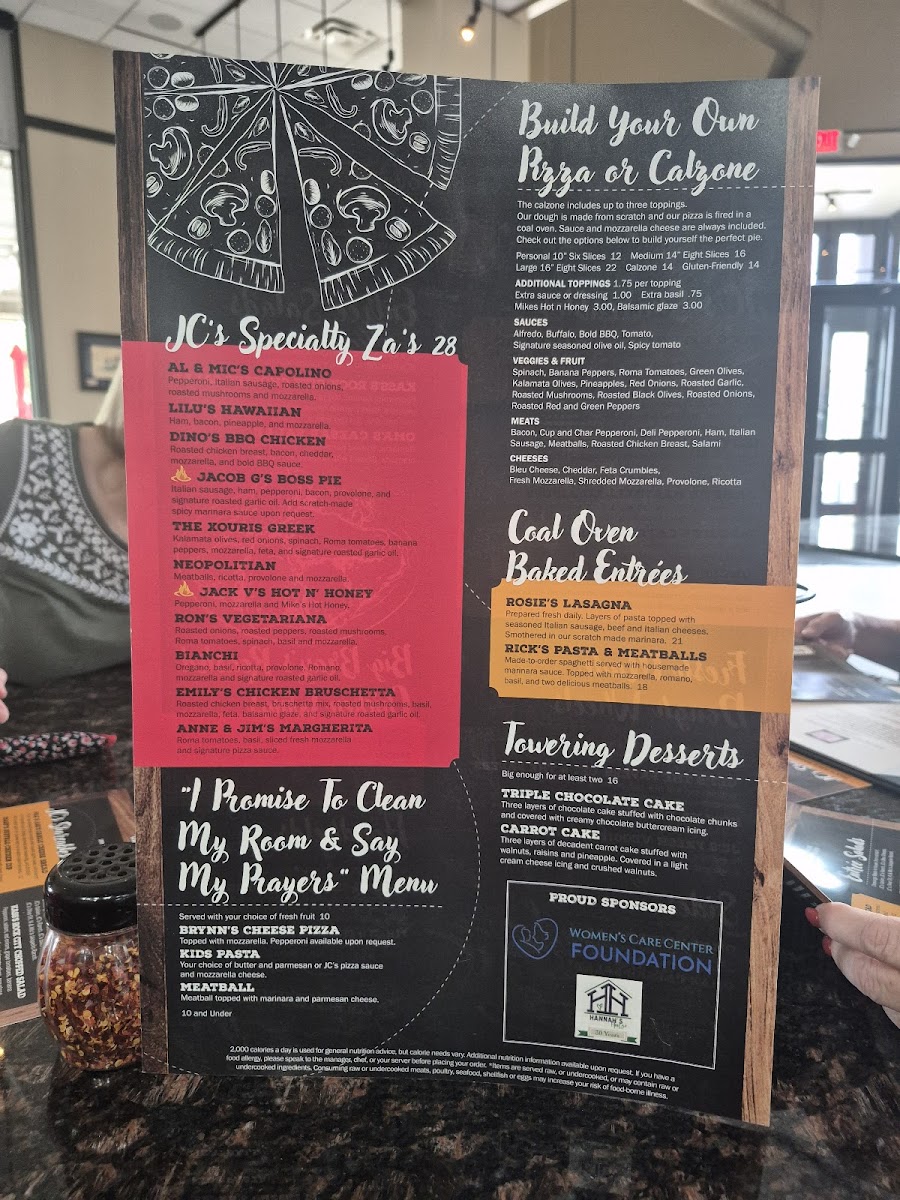 JC's Specialty Za's 28
AL & MIC'S CAPOLINO
Pepperoni, Italian sausage, roasted onions,
roasted mushrooms and mozzarella.
LILU'S HAWAIIAN
Ham, bacon, pineapple, and mozzarella.
DINO'S BBQ CHICKEN
Roasted chicken breast, bacon, cheddar,
mozzarella, and bold BBQ sauce.
JACOB G'S BOSS PIE
Italian sausage, ham, pepperoni, bacon, provolone, and
signature roasted garlic oil. Add scratch-made
spicy marinara sauce upon request.
THE XOURIS GREEK
Kalamata olives, red onions, spinach, Roma tomatoes, banana
peppers, mozzarella, feta, and signature roasted garlic oil.
NEOPOLITIAN
Meatballs, ricotta, provolone and mozzarella.
JACK V'S HOT N' HONEY
Pepperoni, mozzarella and Mike's Hot Honey.
RON'S VEGETARIANA
Roasted onions, roasted peppers, roasted mushrooms,
Roma tomatoes, spinach, basil and mozzarella.
BIANCHI
Oregano, basil, ricotta, provolone, Romano,
mozzarella and signature roasted garlic oil.
EMILY'S CHICKEN BRUSCHETTA
Roasted chicken breast, bruschetta mix, roasted mushrooms, basil,
mozzarella, feta, balsamic glaze, and signature roasted garlic oil.
ANNE & JIM'S MARGHERITA
Roma tomatoes, basil, sliced fresh mozzarella
and signature pizza sauce.
"I Promise To Clean
My Room & Say
My Prayers" Menu
Served with your choice of fresh fruit 10
BRYNN'S CHEESE PIZZA
Topped with mozzarella. Pepperoni available upon request.
KIDS PASTA
Your choice of butter and parmesan or JC's pizza sauce
and mozzarella cheese.
MEATBALL
Meatball topped with marinara and parmesan cheese.
10 and Under
Build Your Own
Pizza or Calzone
The calzone includes up to three toppings.
Our dough is made from scratch and our pizza is fired in a
coal oven. Sauce and mozzarella cheese are always included.
Check out the options below to build yourself the perfect pie.
Personal 10" Six Slices 12 Medium 14" Eight Slices 16
Large 16" Eight Slices 22 Calzone 14 Gluten-Friendly 14
ADDITIONAL TOPPINGS 1.75 per topping
Extra sauce or dressing 1.00 Extra basil .75
Mikes Hot n Honey 3.00, Balsamic glaze 3.00
SAUCES
Alfredo, Buffalo, Bold BBQ, Tomato,
Signature seasoned olive oil, Spicy tomato
VEGGIES & FRUIT
Spinach, Banana Peppers, Roma Tomatoes, Green Olives,
Kalamata Olives, Pineapples, Red Onions, Roasted Garlic,
Roasted Mushrooms, Roasted Black Olives, Roasted Onions,
Roasted Red and Green Peppers
MEATS
Bacon, Cup and Char Pepperoni, Deli Pepperoni, Ham, Italian
Sausage, Meatballs, Roasted Chicken Breast, Salami
CHEESES
Bleu Cheese, Cheddar, Feta Crumbles,
Fresh Mozzarella, Shredded Mozzarella, Provolone, Ricotta
Coal Oven
Baked Entrées
ROSIE'S LASAGNA
Prepared fresh daily. Layers of pasta topped with
seasoned Italian sausage, beef and Italian cheeses.
Smothered in our scratch made marinara. 21
RICK'S PASTA & MEATBALLS
Made-to-order spaghetti served with housemade
marinara sauce. Topped with mozzarella, romano,
basil, and two delicious meatballs. 18
Towering Desserts
Big enough for at least two 16
TRIPLE CHOCOLATE CAKE
Three layers of chocolate cake stuffed with chocolate chunks
and covered with creamy chocolate buttercream icing.
CARROT CAKE
Three layers of decadent carrot cake stuffed with
walnuts, raisins and pineapple. Covered in a light
cream cheese icing and crushed walnuts.
PROUD SPONSORS
WOMEN'S CARE CENTER
FOUNDATION
HANNAH'S
30 Years
2,000 calories a day is used for general nutrition advice, but calorie needs vary. Additional nutrition information available upon request. If you have a
food allergy, please speak to the manager, chef, or your server before placing your order. *Items are served raw, or undercooked, or may contain raw or
undercooked ingredients. Consuming raw or undercooked meats, poultry, seafood, shellfish or eggs may increase your risk of food-borne illness.
EXIT
Entrée Salads